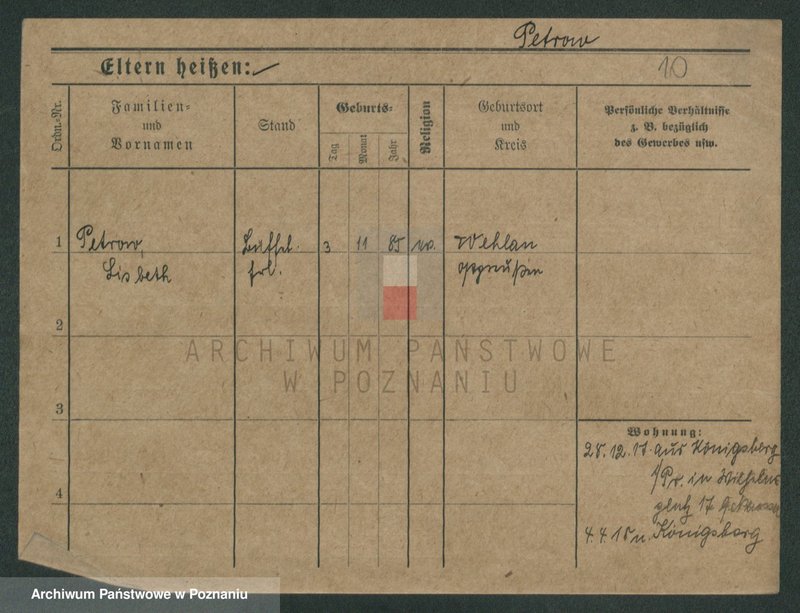 Petrow
Eltern heißen:
10
Ordn.-Nr.
Familien-
und
Vornamen
Stand
Geburts-
Tag
Monat
Jahr
Religion
Geburtsort
und
Kreis
Persönliche Verhältnisse
z. B. bezüglich
des Gewerbes usw.
1 Petrow, Büffet- 3 11 85 ev. Wehlau
Lisbeth frl. Ostpreußen
2
3
4
ARCHIWUM PAŃSTWOWE
W POZNANIU
Wohnung:
28. 12. 17 aus Königsberg
i/Pr. in Wilhelms
platz 17
4. 4. 18 n. Königsberg
Archiwum Państwowe w Poznaniu